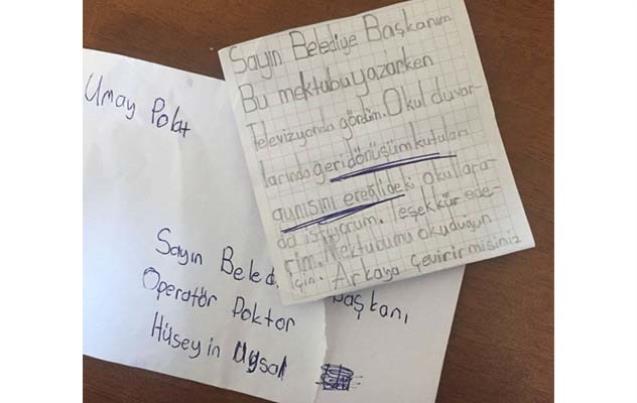 Umay Polat
Sayın Beled
Başkanı
Operatör Doktor
Hüseyin Uysal
Sayın Belediye Başkanım
Bu mektubu yazarken
Televizyonda gördüm. Okul duvar-
larında geri dönüşüm kutuları
aynısını ereğlideki okullara-
da istiyorum. Teşekkür ede-
rim. Mektubumu okuduğun
için. Arkaya çevirirmisiniz